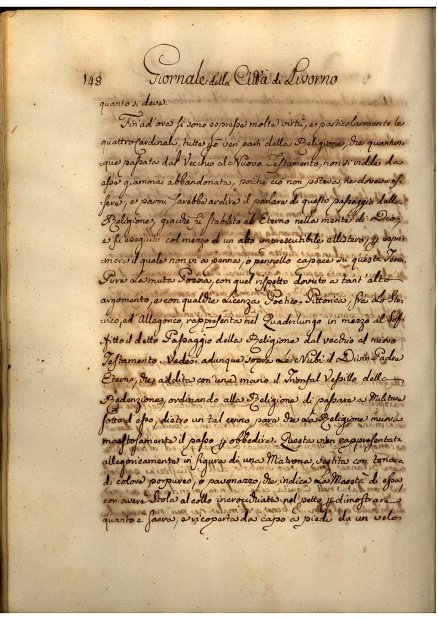 148 Giornale della Città di Livorno
quanto si deve.
Fin ad ora si sono espresse molte virtù, e particolarmente le
quattro Cardinali, tutte però veri parti della Religione, che quantun
que passata dal Vecchio al Nuovo Testamento, non si vidde da
esse giammai abbandonata, poiche ciò non poteva, ne doveva es
sere, e parmi sarebbe ardire il parlare di questo passaggio della
Religione, giache fù stabilito ab Eterno nella mente di Dio,
e fù eseguito col mezzo di un alto imprescutibile Mistero, p espri
mere il quale non vi a penna, o pennello capace sù questa terra
Pure la muta Poesia, con quel rispetto dovuto a tant' alto
argomento, e con qualche licenza Poetico Pittorica, frà lo Sto
rico, ed Allegorico, rappresenta nel Quadrilungo in mezzo al Sof
fitto il detto Passaggio della Religione dal vecchio al nuovo
Testamento. Vedesi adunque sopra le Nubi il Divin Padre
Eterno, che addita con una mano il Trionfal Vessillo della
Redenzione, ordinando alla Religione di passare a Militare
sotto d'esso, dietro un tal cenno pare che la Religione muova
maestosamente il passo p obbedire. Questa vien rappresentata
allegoricamente in figura di una Matrona, vestita con tonaca
di colore porpureo, o pavonazzo, che indica la Maestà di essa
con avere Stola al collo incrocichiata nel petto p dimostrare
quanto è sacra, e ricoperta da capo a piede da un velo